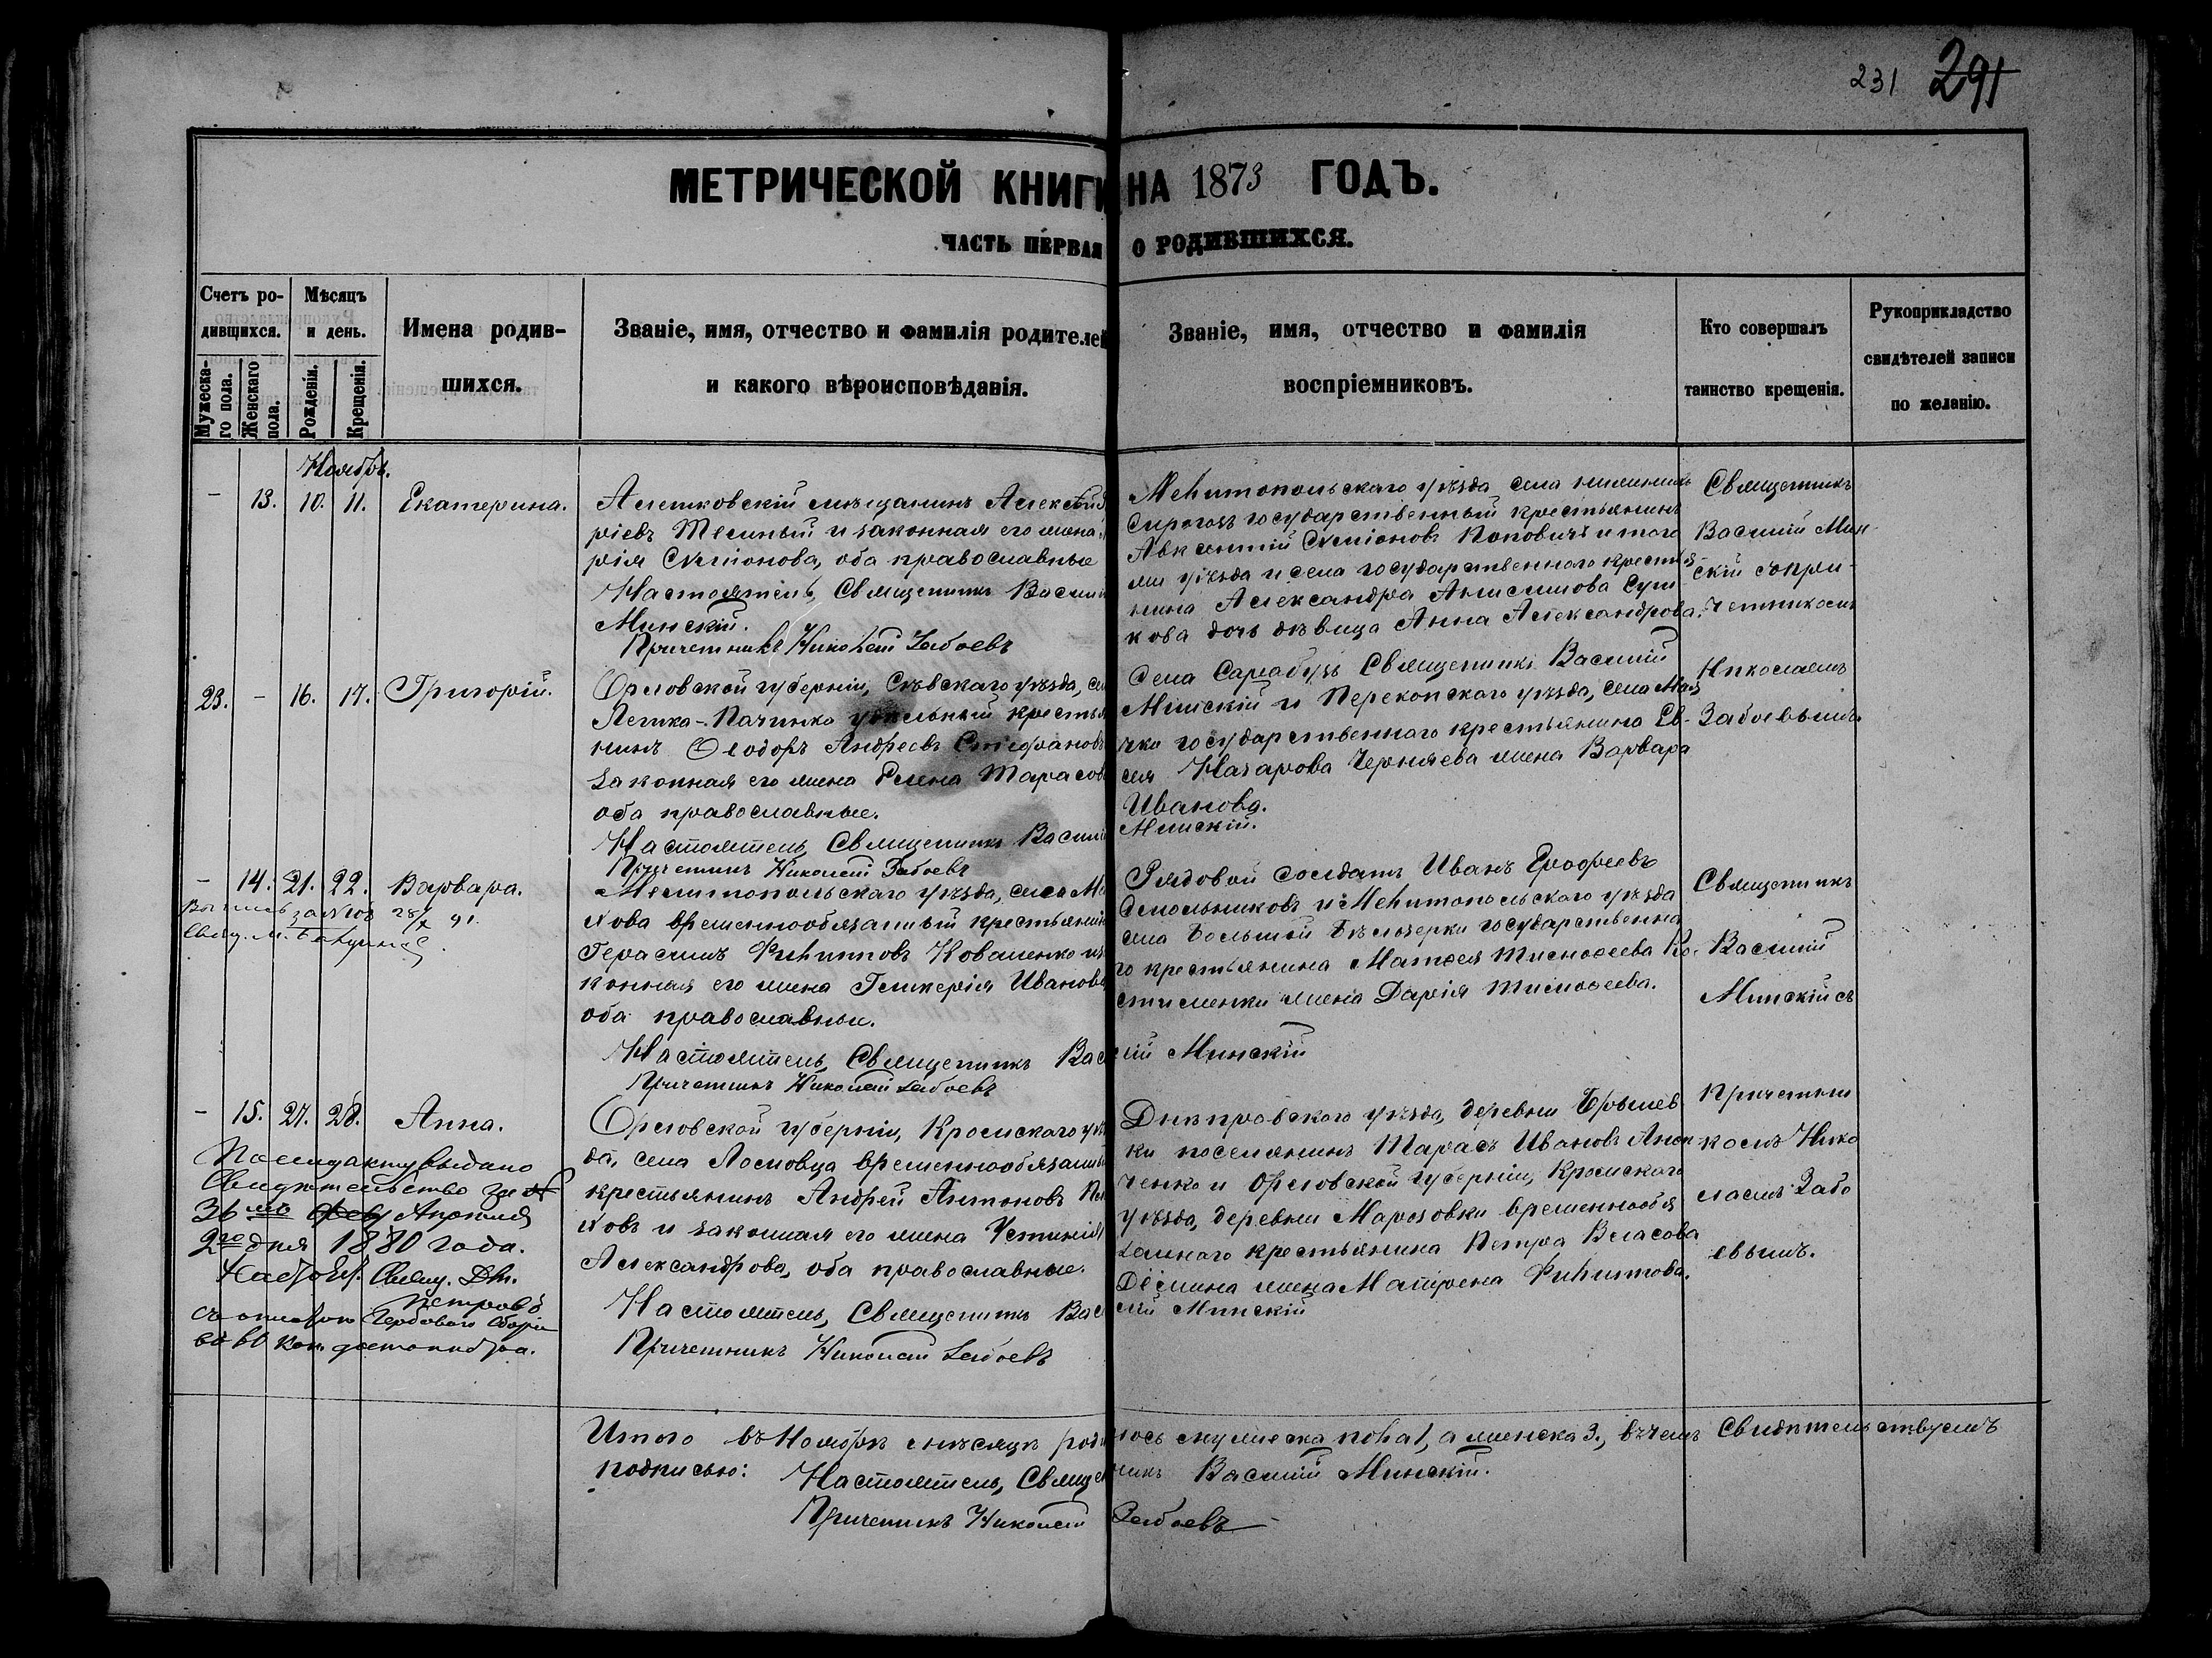 231 291
МЕТРИЧЕСКОЙ КНИГИ НА 1873 ГОДЪ.
ЧАСТЬ ПЕРВАЯ О РОДИВШИХСЯ.
Счетъ ро-
дившихся.
Мужеска-
го пола.
Женскаго
пола.
Мѣсяцъ
и день.
Рожденія.
Крещенія.
Имена родив-
шихся.
Званіе, имя, отчество и фамилія родителей
и какого вѣроисповѣданія.
Званіе, имя, отчество и фамилія
воспріемниковъ.
Кто совершалъ
таинство крещенія.
Рукоприкладство
свидѣтелей записи
по желанію.
Ноябрь.
- 13. 10. 11. Екатерина.
Алешковскій мѣщанинъ Алексѣй
ріевъ и законная его жена
рія Симіонова, оба православные
Настоятель, Священникъ Василій
Минскій.
Причетникъ Николай Забоевъ
Мелитопольскаго уѣзда села
Сирогозъ государственный крестьянинъ
Авксентій Симіоновъ Поповичъ и того
же уѣзда и села государственнаго крестья
нина Александра Анисимова
кова дочь дѣвица Анна Александрова.
Священникъ
Василій Мин
скій съ при-
четникомъ
Николаемъ
Забоевымъ
23. - 16. 17. Григорій.
Орловской губерніи, Сѣвскаго уѣзда, се
удѣльный кресть
нинъ Ѳеодоръ Андреевъ Стефановъ
законная его жена Елена Тарасов
оба православные.
Настоятель, Священникъ Василій
Причетникъ Николай Забоевъ
Села Сарабузъ Священникъ Василій
Минскій и Перекопскаго уѣзда, села Мая
чка государственнаго крестьянина Ев-
сея Назарова Черняева жена Варвара
Иванова.
Минскій.
- 14. 21. 22. Варвара.
Мелитопольскаго уѣзда, села Ма
хова временнообязанный крестьянин
Герасимъ Филипповъ Коваленко и
конная его жена Гликерія Иванов
оба православные.
Настоятель, Священникъ Вас
Причетникъ Николай Забоевъ
Рядовой солдатъ Иванъ Ерофеевъ
Смольниковъ и Мелитопольскаго уѣзда
села Большой Бѣлозерки государственна
го крестьянина Матѳея Тимоѳеева Ко-
стименки жена Дарія Тимоѳеева.
лій Минскій
Священникъ
Василій
Минскій съ
- 15. 27. 28. Анна.
По сему акту выдано
Свидѣтельство за №
36 мъ Апрѣля
2го дня 1880 года.
Свящ. Дм.
Петровъ
Орловской губерніи, Кромскаго уѣ
да, села Лословца временнообязанны
крестьянинъ Андрей Антоновъ
ховъ и законная его жена Устинія
Александрова, оба православные.
Настоятель, Священникъ Вас
Причетникъ Николай Забоевъ
Днѣпровскаго уѣзда, деревни
ки поселянинъ Тарасъ Ивановъ
ченко и Орловской губерніи, Кромскаго
уѣзда, деревни Марозовки временнообя
заннаго крестьянина Петра Власова
Дёмина жена Матрена Филиппова.
лій Минскій
Причетни
комъ Нико
лаемъ Забо
евымъ.
Итого въ Ноябрѣ мѣсяцѣ родилось мужеска пола 1, а женска 3., въ чемъ Свидѣтельствуемъ
подписью: Настоятель, Священникъ Василій Минскій.
Причетникъ Николай Забоевъ